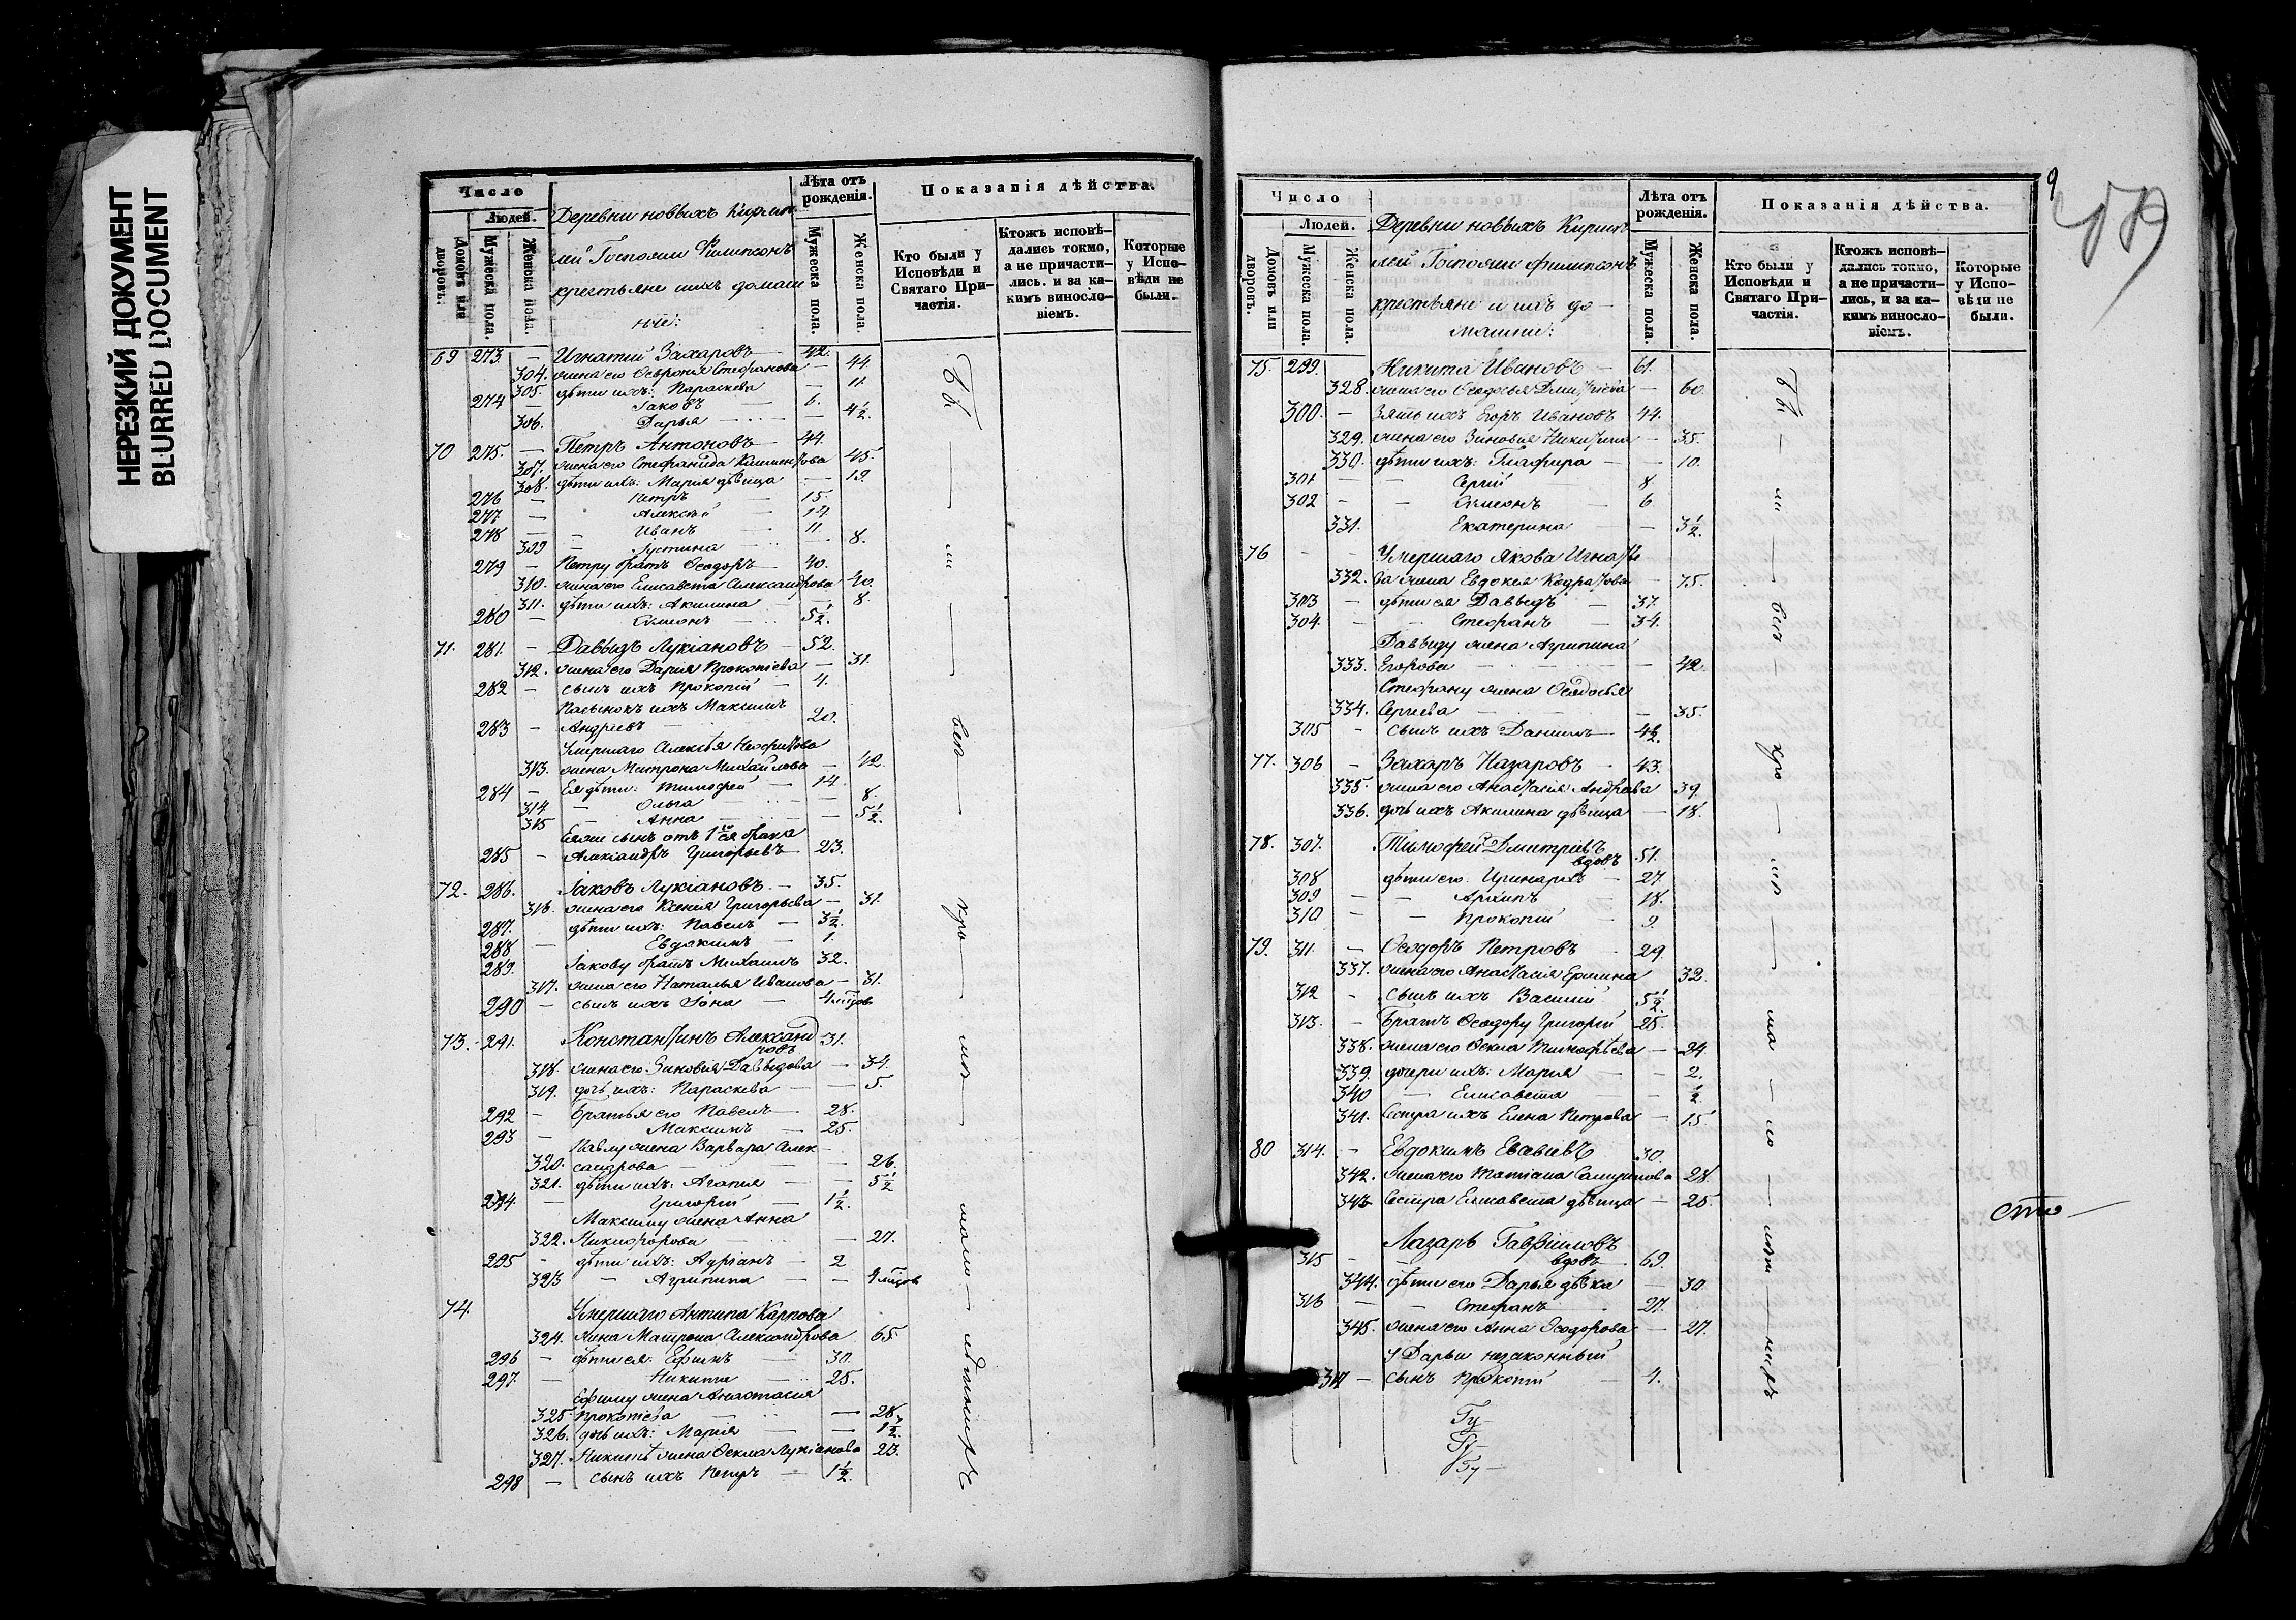 НЕРЕЗКИЙ ДОКУМЕНТ
BLURRED DOCUMENT
Число
Людей.
Домовъ или дворовъ.
Мужеска пола.
Женска пола.
Деревни новыхъ Кирпи
лей Госпожи Филипсонъ
крестьяне ихъ домаш
ніе:
Лѣта отъ рожденія.
Мужеска пола.
Женска пола.
Показанія дѣйства.
Кто были у Исповѣди и Святаго Причастія.
Ктожъ исповѣдались токмо, а не причастились. и за какимъ винословіемъ.
Которые у Исповѣди не были.
69 273. — Игнатий Захаровъ — 42.
304. жена его Февронія Стефанова — 44.
305. дѣти ихъ: Параскева — 11.
274 — Іаковъ — 6.
306. Дарья — 4½.
70 275. — Петръ Антоновъ — 44.
307. жена его Стефанида Климентова 45.
308. дѣти ихъ: Марія дѣвица — 19.
276 — Петръ — 15.
277 — Алексѣй — 14.
278 — Иванъ — 11.
309 — Іустина — 8.
279 — Петру братъ Ѳеодоръ — 40.
310. жена его Елисавета Александрова 40.
311. дѣти ихъ: Акилина — 8.
280 — Симеонъ — 5½.
71. 281. — Даввидъ Лукіановъ — 52.
312. жена его Дарія Прокопіева — 31.
282 — сынъ ихъ Прокопій — 4.
Пасынокъ ихъ Максимъ
283 — Андреевъ — 20.
Умершаго Алексѣя Неофитова
313. жена Матрона Михайлова — 42.
284 — Ея дѣти: Тимофей — 14.
314 — Ольга — 8.
315 — Анна — 5½.
Еяже сынъ отъ 1го брака
285 — Александръ Григорьевъ 23.
72. 286. Іаковъ Лукіановъ. — 35.
316. жена его Ксенія Григорьева — 31.
287. дѣти ихъ: Павелъ — 3½.
288 — Евдокимъ — 1.
289. Іакову братъ Михаилъ 32.
317. жена его Наталья Иванова — 31.
290 — сынъ ихъ Іона — 4 мѣсцов
73. 291. Константинъ Александ
ровъ 31.
318. жена его Зиновія Даввидова — 34.
319. дочь ихъ: Параскева — 5.
292 — братья его Павелъ — 28.
293 — Максимъ — 25.
Павлу жена Варвара Алек
320. сандрова — 26.
321. дѣти ихъ: Агапія — 5½
294 — Григорій — 1½.
Максиму жена Анна
322. Никифорова — 27.
295 — дѣти ихъ: Адріанъ — 2
323 — Агрипина — 4 мѣсцов
74. Умершаго Антипа Карпова
324. жена Матрона Александрова 65
296 — дѣти ея: Ефимъ — 30.
297. — Никита — 25.
Ефиму жена Анастасия
325. Прокопіева — 28,
326. дочь ихъ: Марія — 1½.
327. Никитѣ жена Ѳекла Лукіанова 23.
298 — сынъ ихъ Петръ — 1½.
9
Число
Людей.
Домовъ или дворовъ.
Мужеска пола.
Женска пола.
Деревни новыхъ Кирпи
лей Госпожи Филипсонъ
крестьяне и ихъ до
машніе:
Лѣта отъ рожденія.
Мужеска пола.
Женска пола.
Показанія дѣйства.
Кто были у Исповѣди и Святаго Причастія.
Ктожъ исповѣдались токмо, а не причастились, и за какимъ винословіемъ.
Которые у Исповѣди не были.
75. 299. Никита Ивановъ — 61.
328. жена его Ѳеодосья Дмитріева — 60.
300. — Зять ихъ Егоръ Ивановъ 44.
329. жена его Зиновія Никитина — 35.
330. дѣти ихъ: Глафира — 10.
301 — Сергій 8.
302 — Симеонъ — 6.
331. Екатерина — 3½.
76 — Умершаго Якова Игнать
332. ва жена Евдокея Кодратова — 75.
303 — дѣти ея Даввидъ — 37.
304. — Стефанъ — 34.
Даввиду жена Агрипина
333. Егорова — 42.
Стефану жена Ѳеодосья
334. Сергіева — 35.
305 — сынъ ихъ Даниилъ 4½.
77. 306 — Захаръ Назаровъ 43.
335. жена его Анастасія Андреева 39.
336. дочь ихъ Акилина дѣвица — 18.
78. 307. Тимофей Дмитріевъ
вдовъ 51.
308 дѣти его: Иринархъ — 27.
309 — Архипъ 18.
310 — Прокопій 9.
79. 311 — Ѳеодоръ Петровъ — 29.
337. жена его Анастасія Ермина 32.
312 — сынъ ихъ Василій 5½.
313. — братъ Ѳеодору Григорій 25.
338. жена его Ѳекла Тимофѣева — 24.
339. дочери ихъ: Марія — 2.
340 — Елисавета — ½
341. Сестра ихъ Елена Петрова — 15
80 314. — Евдокимъ Евсевіевъ 30.
342. жена его Татіана 28.
343. Сестра Елисавета дѣвица — 25.
Лазарь Гавриловъ
315 — вдовъ 69.
344. дѣти его Дарья дѣвка — 30.
316 — Стефанъ — 27.
345. жена его Анна Ѳеодорова — 27.
у Дарьи незаконный
317 — сынъ Прокопій — 4.